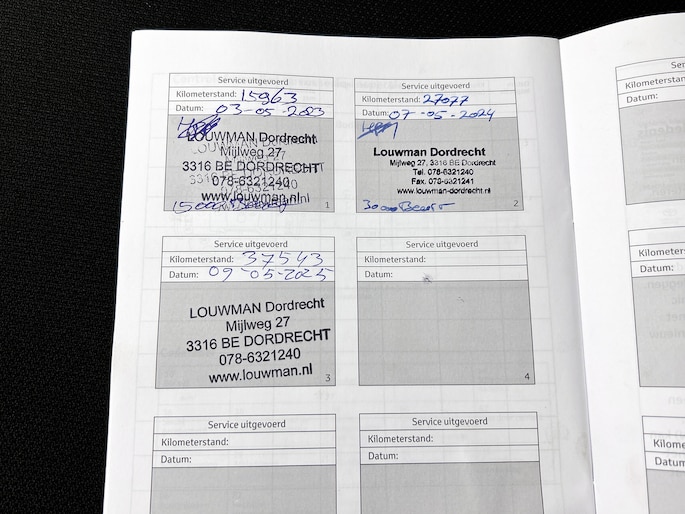 Service uitgevoerd
Kilometerstand: 15963
Datum: 03-05-2023
LOUWMAN Dordrecht
Mijlweg 27
3316 BE DORDRECHT
078-6321240
www.louwman.nl
15000
1
Service uitgevoerd
Kilometerstand: 27077
Datum: 07-05-2024
Louwman Dordrecht
Mijlweg 27, 3316 BE Dordrecht
Tel. 078-6321240
Fax. 078-6321241
www.louwman-dordrecht.nl
2
Service uitgevoerd
Kilometerstand: 37543
Datum: 09-05-2025
LOUWMAN Dordrecht
Mijlweg 27
3316 BE DORDRECHT
078-6321240
www.louwman.nl
3
Service uitgevoerd
Kilometerstand:
Datum:
4
Service uitgevoerd
Kilometerstand:
Datum:
Service uitgevoerd
Kilometerstand:
Datum:
Ser
Kilometerstan
Datum:
Kilometer
Datum:
Kilome
Datum